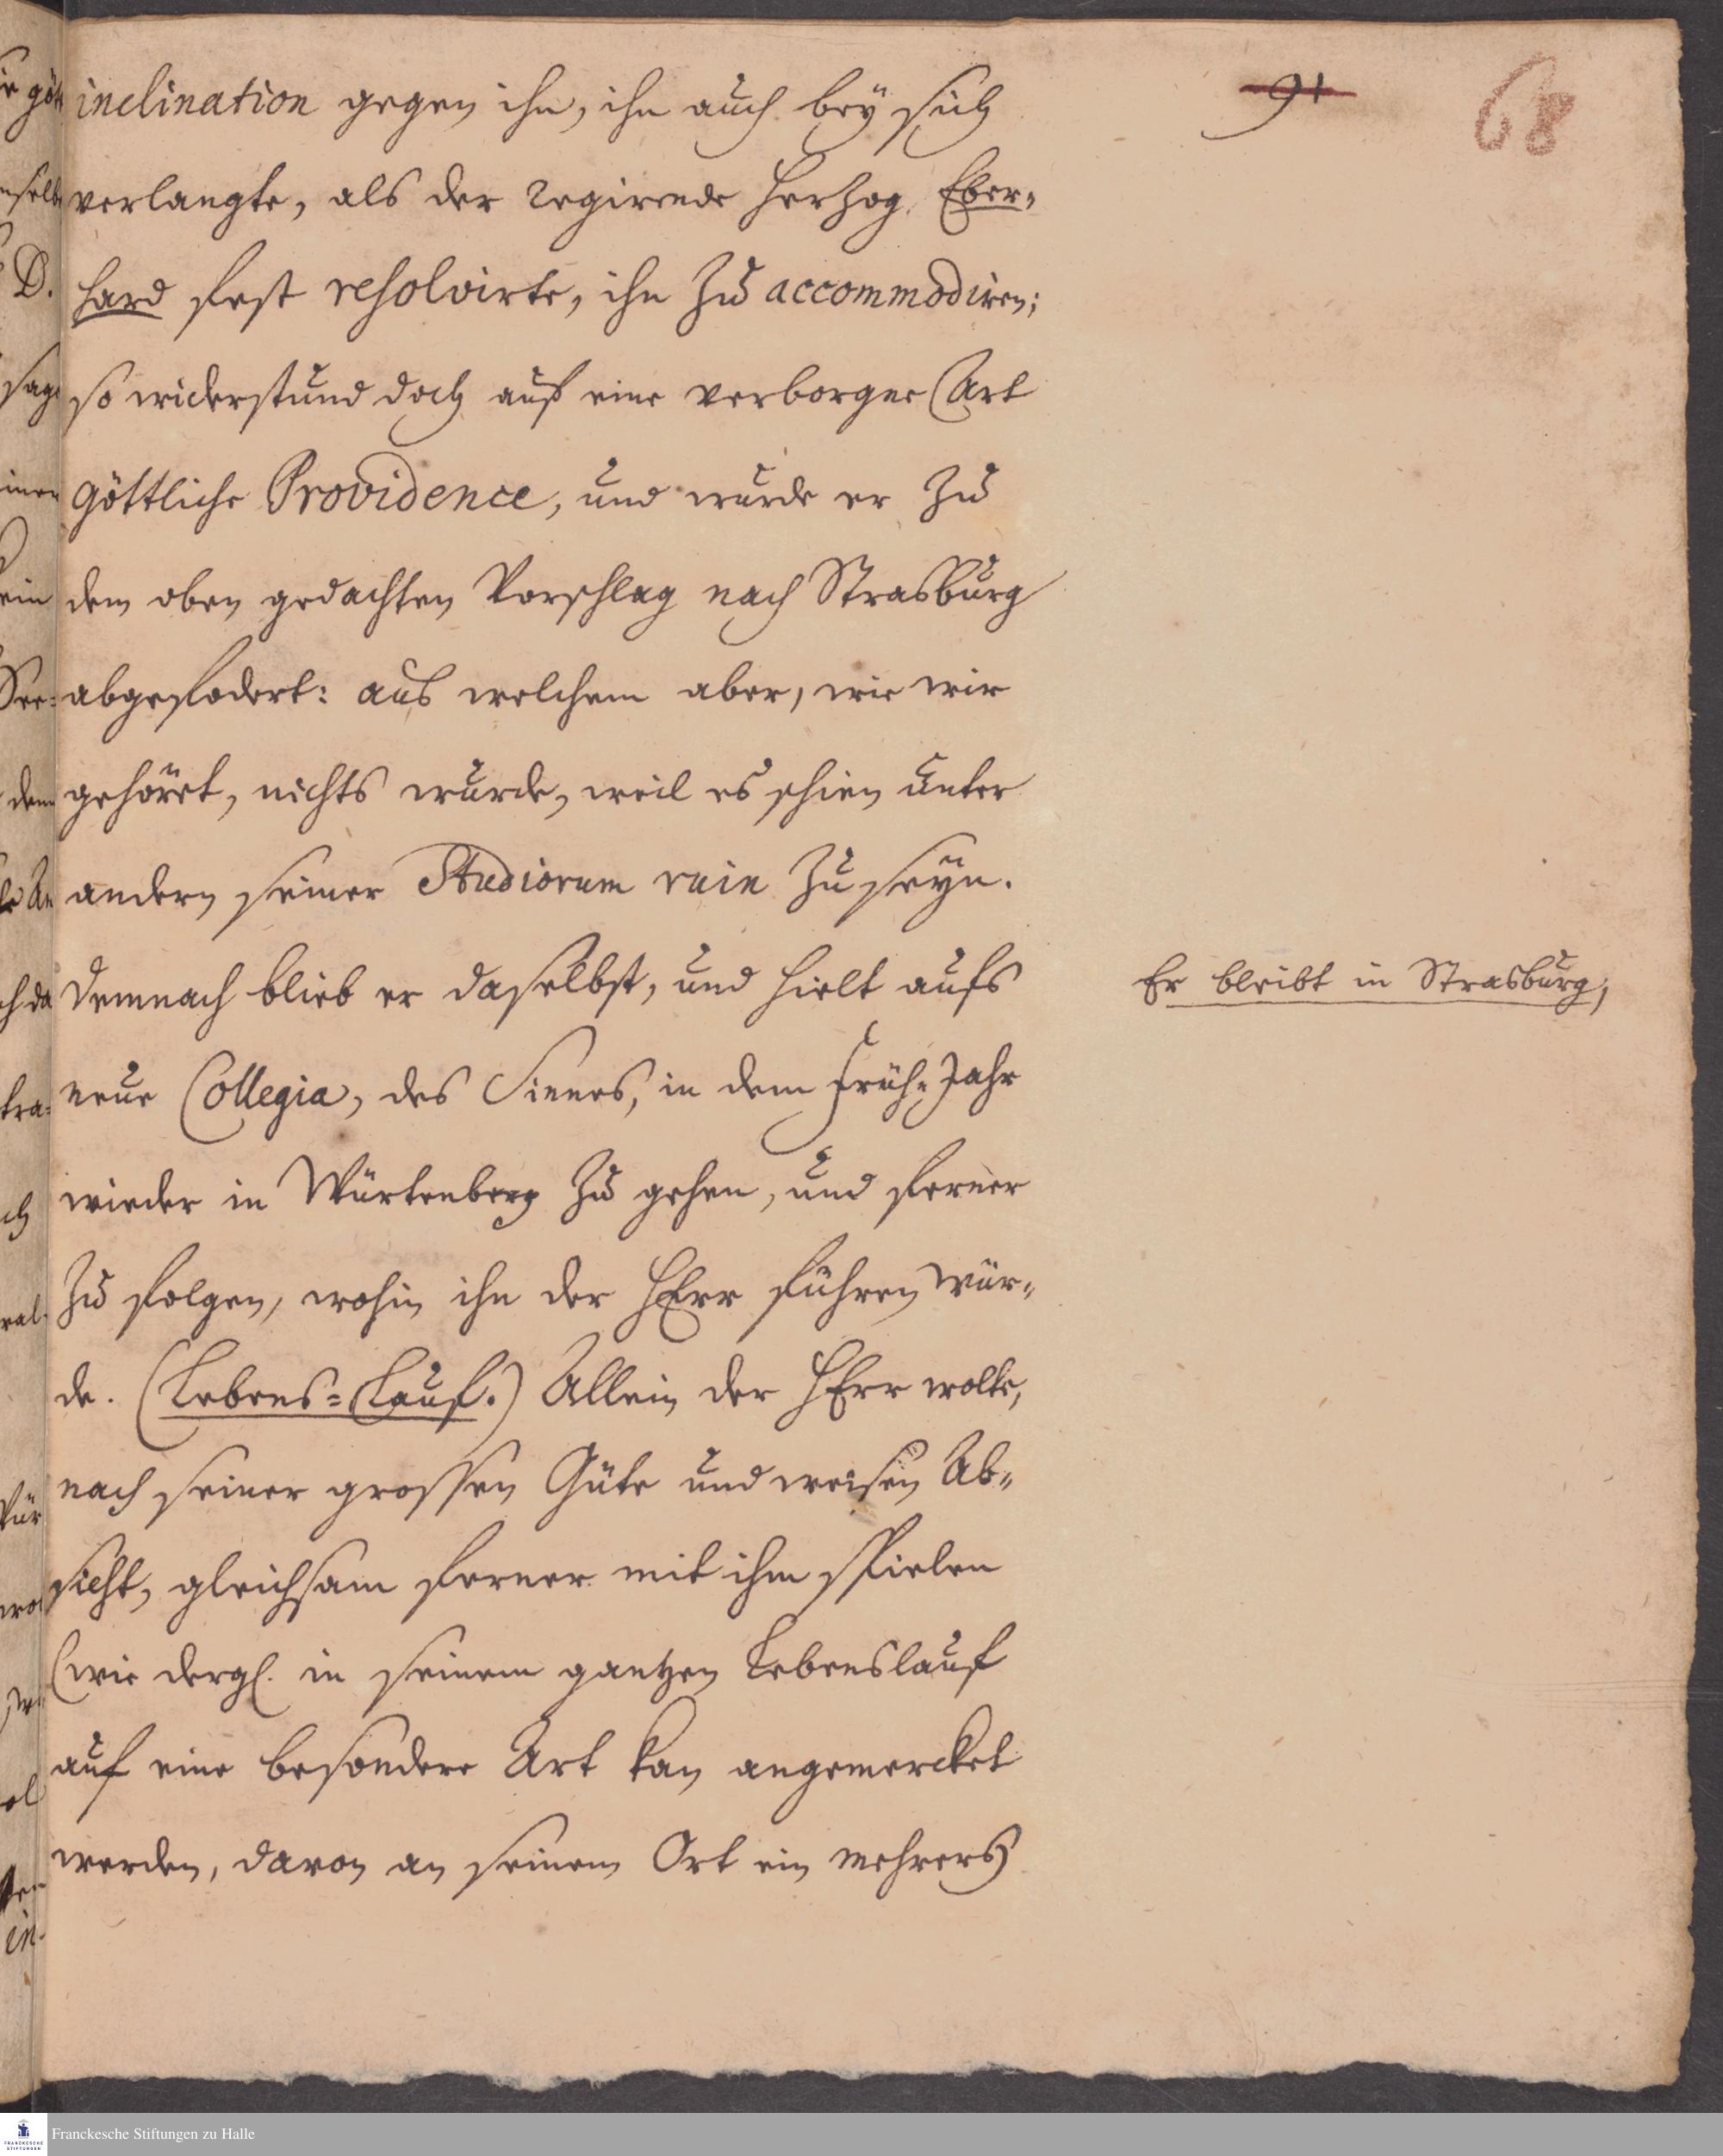 91
68
inclination gegen ihn, ihn auch bey sich
verlangte, als der regirende Hertzog Eber-
hard fest resolvirte, ihn zu accommodiren;
so widerstund doch auf eine verborgne Art
göttliche Providence, und wurde er zu
dem oben gedachten Vorschlag nach Strasburg
abgefodert: aus welchem aber, wie wir
gehöret, nichts wurde, weil es schien unter
andern seiner Studiorum ruin zu seyn.
Demnach blieb er daselbst, und hielt aufs
neue Collegia, des Sinnes, in dem Früh-Jahr
wieder in Würtenberg zu gehen, und ferner
zu folgen, wohin ihn der HErr führen wür-
de. (Lebens-Lauf.) Allein der HErr wolte,
nach seiner grossen Güte und weisen Ab-
sicht, gleichsam ferner mit ihm spielen
(wie dergl. in seinem gantzen Lebenslauf
auf eine besondere Art kan angemercket
werden, davon an seinem Ort ein mehrers
Er bleibt in Strasburg,
Franckesche Stiftungen zu Halle